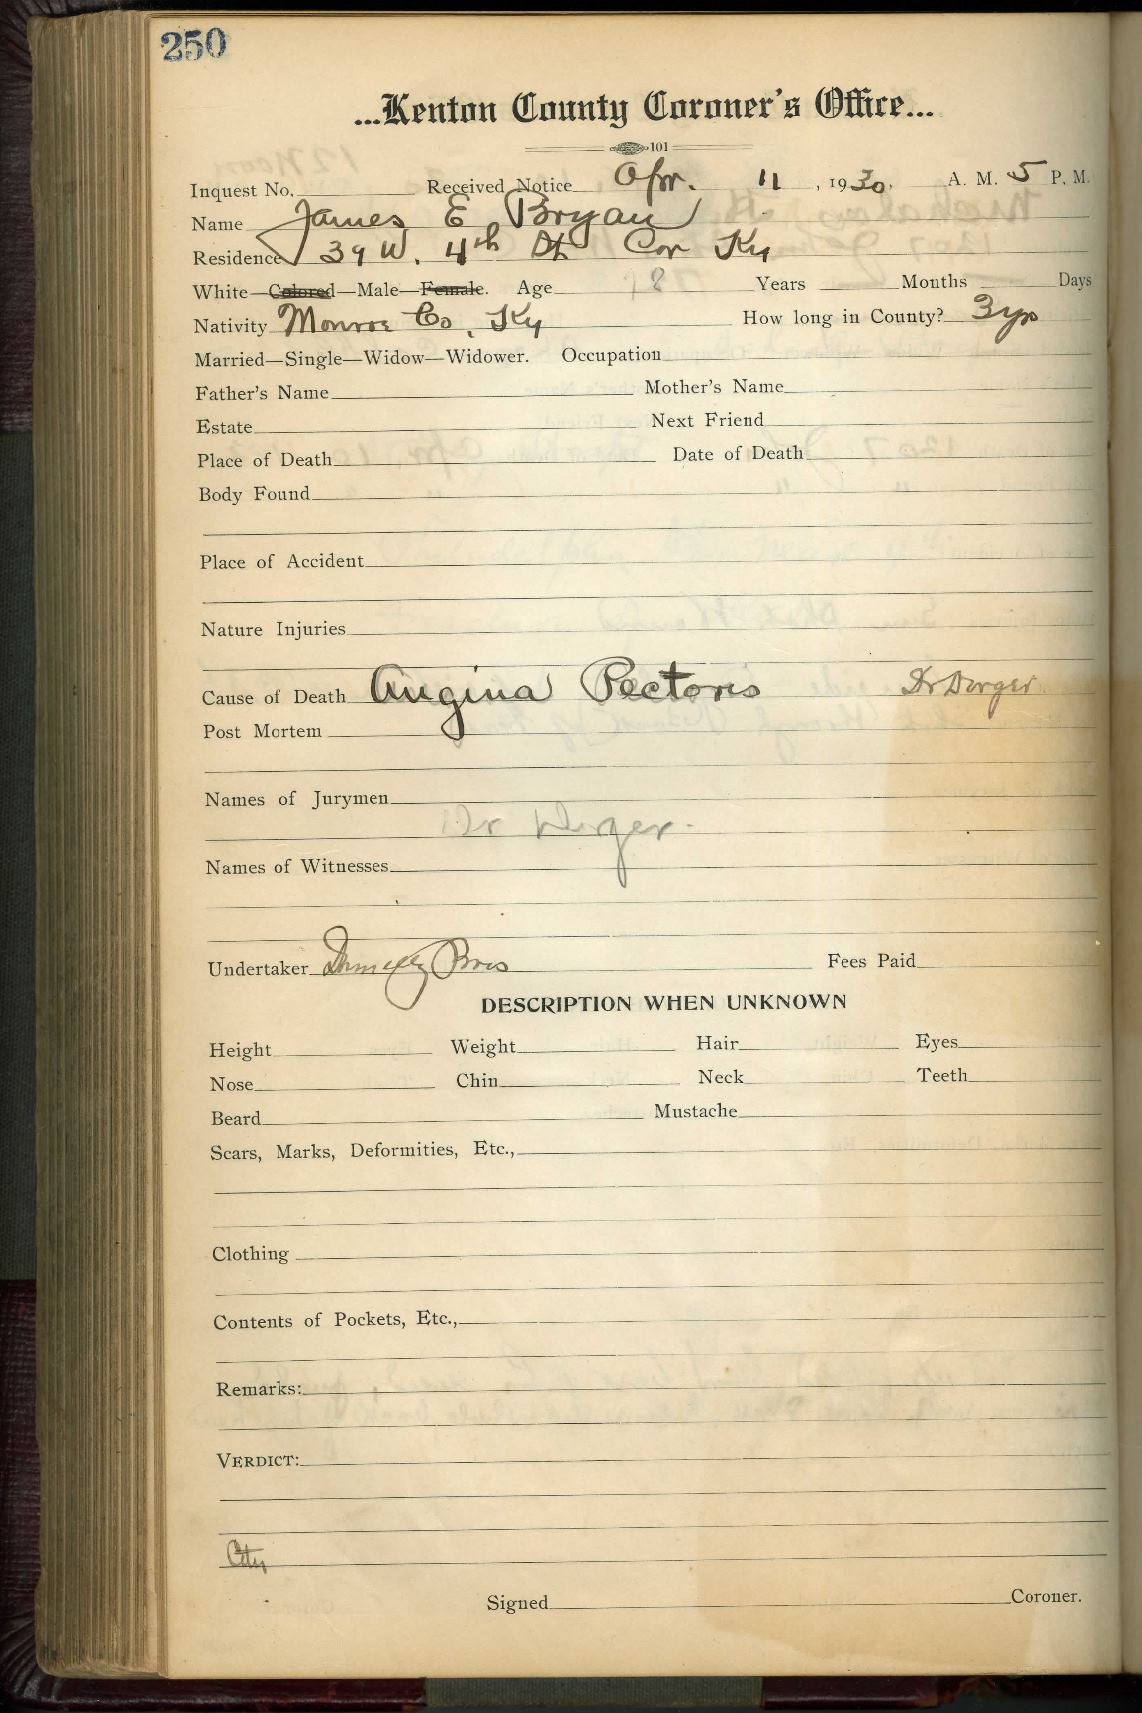 250
...Kenton County Coroner's Office...
101
Inquest No. Received Notice Apr. 11, 1930. A. M. 5 P. M.
Name James E Bryan
Residence 39 W. 4th St Cov Ky
White—Colored—Male—Female. Age 78 Years Months Days
Nativity Monroe Co, Ky How long in County? 3 yrs
Married—Single—Widow—Widower. Occupation
Father's Name Mother's Name
Estate Next Friend
Place of Death Date of Death
Body Found
Place of Accident
Nature Injuries
Cause of Death Angina Pectoris Dr Dorger
Post Mortem
Names of Jurymen
Dr Dorger.
Names of Witnesses
Undertaker Donnelly Bros Fees Paid
DESCRIPTION WHEN UNKNOWN
Height Weight Hair Eyes
Nose Chin Neck Teeth
Beard Mustache
Scars, Marks, Deformities, Etc.,
Clothing
Contents of Pockets, Etc.,
Remarks:
VERDICT:
City
Signed Coroner.